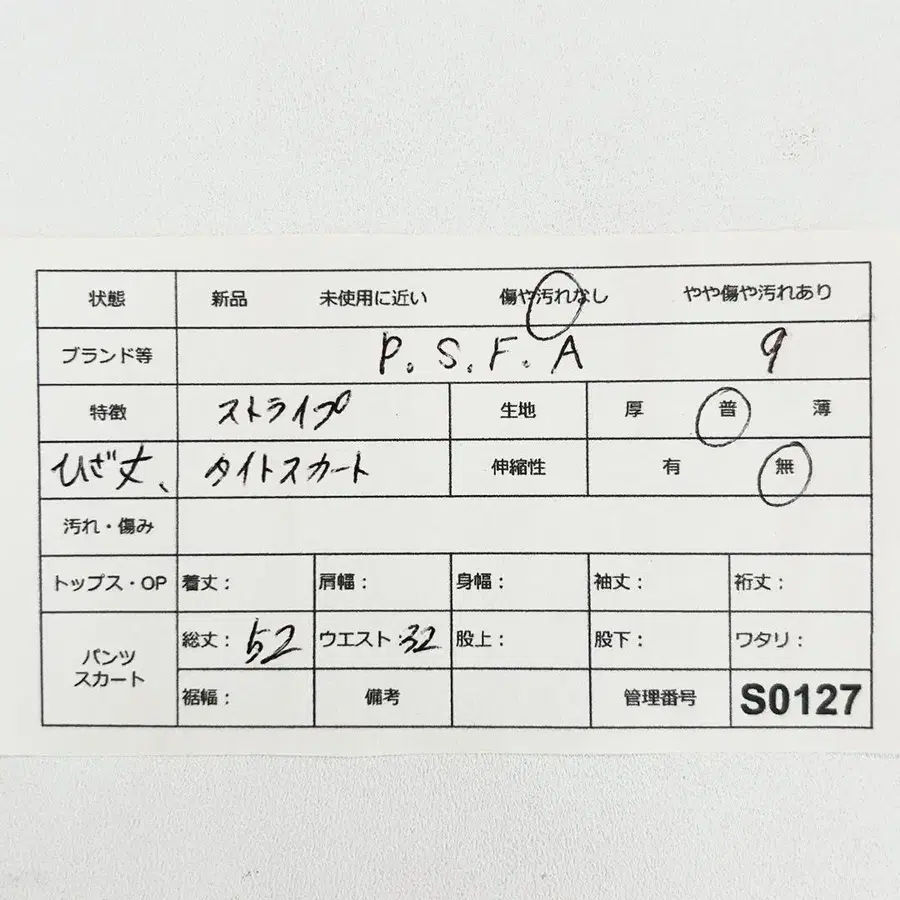 状態 新品 未使用に近い 傷や汚れなし やや傷や汚れあり
ブランド等 P.S.F.A 9
特徴 ストライプ 生地 厚 普 薄
ひざ丈、タイトスカート 伸縮性 有 無
汚れ・傷み
トップス・OP 着丈： 肩幅： 身幅： 袖丈： 裄丈：
パンツ スカート 総丈：52 ウエスト：32 股上： 股下： ワタリ：
裾幅： 備考 管理番号 S0127